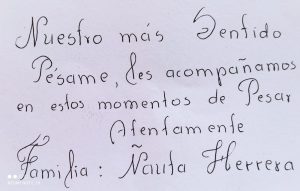 Nuestro más Sentido
Pésame, les acompañamos
en estos momentos de Pesar
Atentamente
Familia: Ñauta Herrera